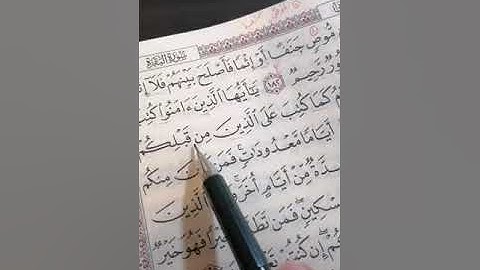 سُورَةُ البَقَرَةِ
مُّوصٍ جَنَفًا أَوْ إِثْمًا فَأَصْلَحَ بَيْنَهُمْ فَلَآ إِثْ
رَّحِيمٌ ١٨٢ يَٰٓأَيُّهَا ٱلَّذِينَ ءَامَنُوا۟ كُتِبَ
كَمَا كُتِبَ عَلَى ٱلَّذِينَ مِن قَبْلِكُمْ
أَيَّامًا مَّعْدُودَٰتٍ فَمَن مِنكُم
مِّنْ أَيَّامٍ أُخَرَ ٱلَّذِينَ
سْكِينٍ فَمَن تَطَ يْرًا فَهُوَ خَيْرٌ
إِن كُنتُمْ